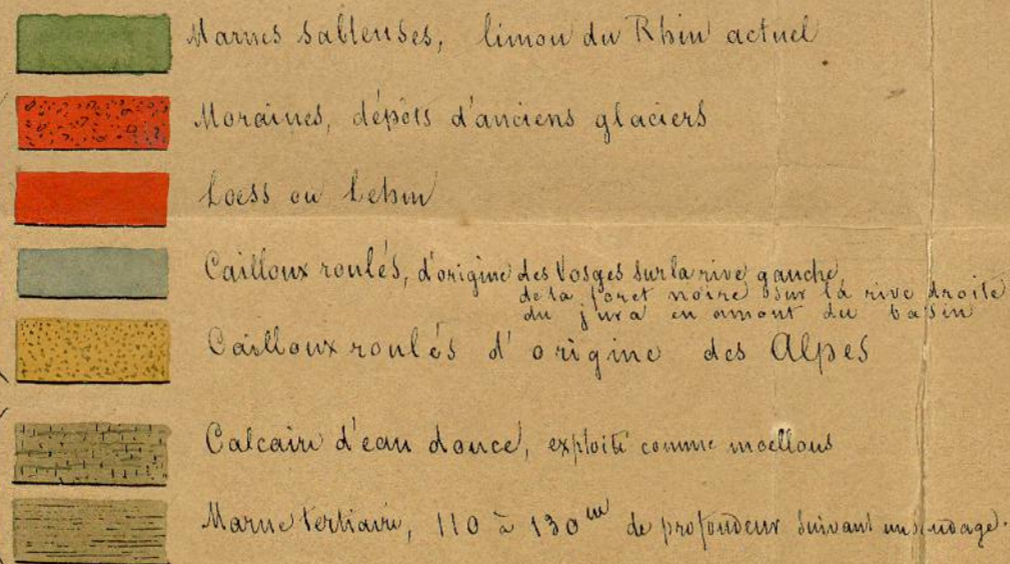 Marnes sableuses, limon du Rhin actuel
Moraines, dépôts d'anciens glaciers
Loess ou Lehm
Cailloux roulés, d'origine des Vosges sur la rive gauche,
de la foret noire sur la rive droite
du jura en amont du basin
Cailloux roulés d'origine des Alpes
Calcaire d'eau douce, exploité comme moellons
Marne tertiaire, 110 à 130m de profondeur suivant un sondage.